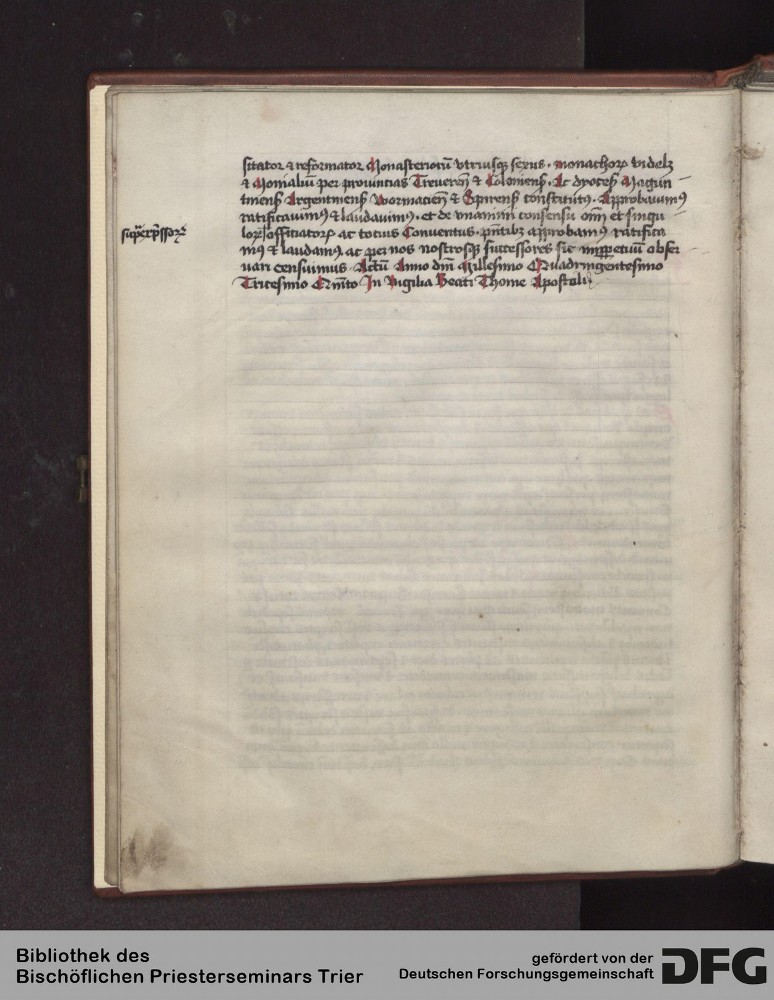 sitator ⁊ reformator Monasterioꝝ vtriusqꝫ sexus. monachoꝝ videlꝫ
⁊ Monialiū per prouincias Treuereñ ⁊ Colonienꝭ. Ac dyoceẜ Magun
tinenꝭ Argentinenꝭ Wormacieñ ⁊ Spirenꝭ constitutꝰ. Approbauimꝰ
ratificauimꝰ ⁊ laudauimꝰ. et de vnanimi consensu om̄i et singu
supͣexp̄ssoꝝ
loꝝ officiatoꝝ ac totius Conuentus. pn̄tibꝫ approbamꝰ ratifica
mꝰ ⁊ laudamꝰ ac per nos nostrosqꝫ successores sic inꝑpetuū obser
uari censuimus Actū Anno dn̄i Millesimo Quadringentesimo
Tricesimo Quīto In Vigilia Beati Thome Apostoli
Bibliothek des
Bischöflichen Priesterseminars Trier
gefördert von der
Deutschen Forschungsgemeinschaft
DFG